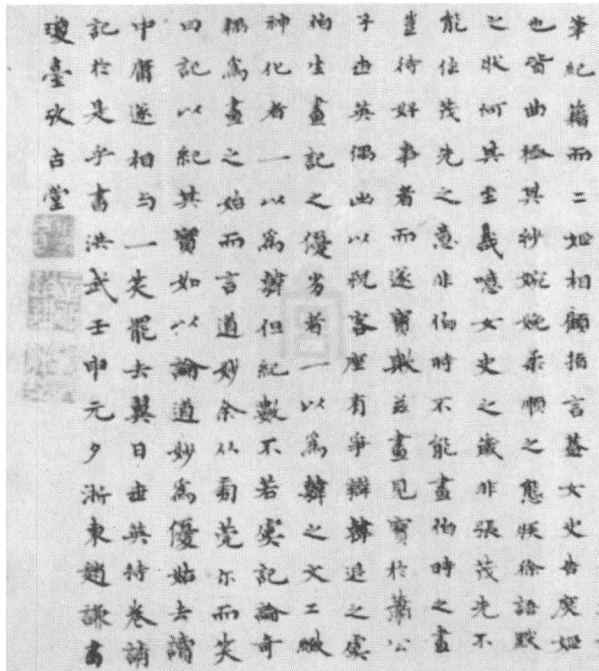 筆紀籍而二姬相顧指言蓋女史告庶姬
也皆曲極其妙婉娩柔順之態疾徐語默
之狀何其至哉噫女史之箴非張茂先不
能任茂先之意非伯時不能畫伯時之畫
豈待好事者而遂寶歟茲畫見寶於蕭公
子世英偶出以視客座有爭辯韓退之虞
伯生畫記之優劣者一以爲韓之文工緻
神化者一以爲韓但紀數不若虞記論奇
爲畫之始而言道妙余從旁莞尔而笑
曰記以紀其實如以論道妙爲優姑去讀
中庸遂相与一笑罷去翼日世英持卷請
記於是乎書洪武壬申元夕浙東趙謙書
瓊臺攷古堂